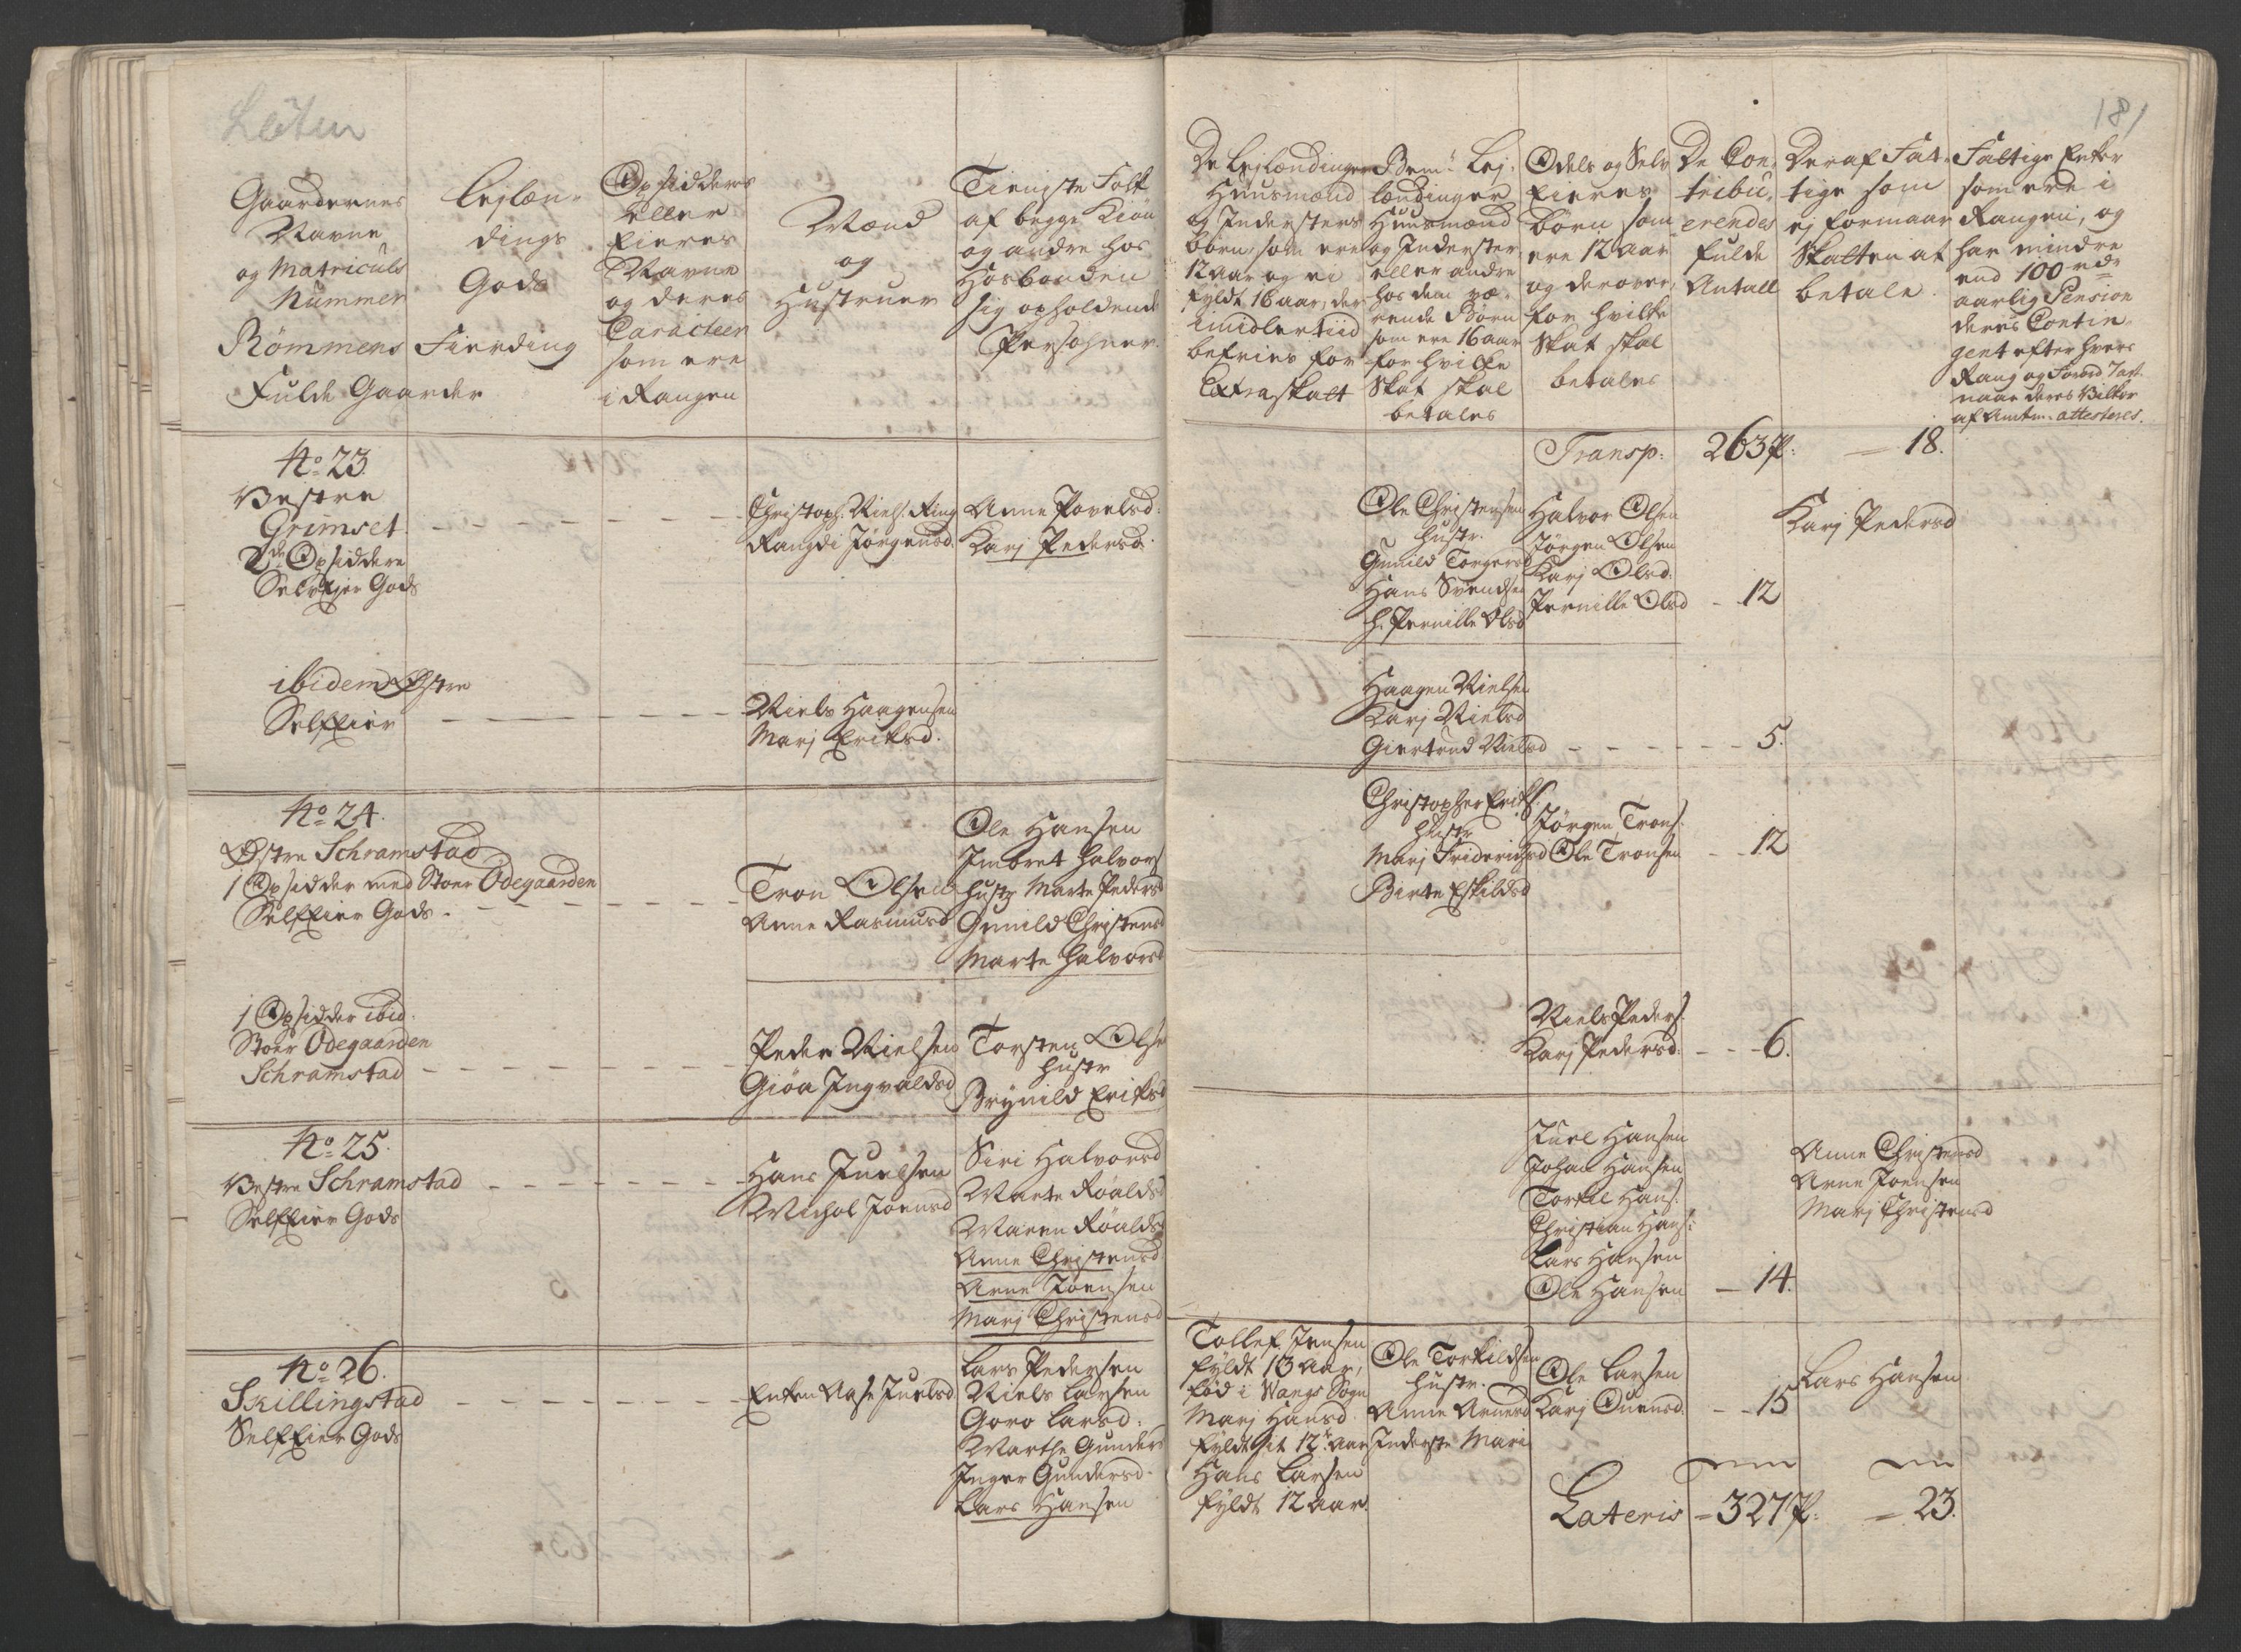 Löten
181
Gaardernes
Navne
og Matriculs
Nummer
Rømmens Fierding
Fulde Gaarder
Lejlæn-
dings
Gods
Opsidderes
Eller
Eieres
Navne
og deres
Caracteer
som ere
i Rangen
Mænd
og
Hustruer
Tieniste Folk
af begge Kiøn
og andre hos
Hosbonden
sig opholdende
Persohner.
De Lejlændinger
Huusmænd
og Inderster
børn, som ere
12 aar og ei
fyldt 16 aar, der
imidlertiid
befries for
Extraskatt
Bem.te Lej-
lændinger
Huusmænd
og Inderster
eller andre
hos dem væ-
rende Børn
som ere 16 aar
for hvilke
Skat skal
betales
Odels og Selv
Eieres
børn som
ere 12 aar
og derover,
for hvilke
Skat skal
betales
De Con-
tribu-
erendes
fulde
Antall
Deraf Fat-
tige som
ej formaar
Skatten at
betale
Fattige Enker
som ere i
Rangen, og
har mindre
end 100 rdr
aarlig Pension
deres Contin-
gent efter hvers
Rang og
naar deres Vilkor
af Amtm. attesteres.
Transp: 263 P: — 18.
No 23
Vestre
Grimset
2de Opsiddere
SelvEjer Gods
Christoph. Niels. Ring
Rangdi Jørgensd.
Anne Povelsd:
Karj Pedersd.
Ole Christensen
hustr.
Gunild Torgersd
Hans Svendsen
h. Pernille Olsd
Halvor Olsen
Jørgen Olsen
Karj Olsd:
Pernille Olsd - 12
Karj Pedersd
ibidem Østre
SelfEier
Niels Haagensen
Marj Eriksd.
Haagen Nielsen
Karj Nielsd
Giertrud Nielsd - - - - - - 5.
No 24.
Østre Schramstad
1 Opsidder med Stoer Ödegaarden
SelfEier Gods -
Tron Olsen
Anne Rasmusd
Ole Hansen
Imbret Halvors
hustr Marte Pedersd
Gunild Christensd
Marte Halvorsd
Christopher Eriks.
hustr
Marj Friderichsd
Birte Eskildsd
Jørgen Trons.
Ole Tronsen - - 12
1 Opsidder ibid.
Stoer Ödegaarden
Schramstad
Peder Nielsen
Giøa Ingvaldsd
Torsten Olse
hustr
Brynild Eriksd
Niels Peders.
Karj Pedersd. - - - 6.
No 25.
Vestre Schramstad
SelfEier Gods
Hans Juelsen
Michol Joensd
Siri Halvorsd
Marte Roaldsd
Maren Roaldsd
Anne Christensd
Arne Joensen
Marj Christensd
Juel Hansen
Johan Hansen
Torkil Hans.
Christian Hans:
Lars Hansen
Ole Hansen - 14.
Anne Christensd
Arne Joensen
Marj Christensd
No 26.
Skillingstad
SelfEier Gods
Enken Aase Juelsd
Lars Pedersen
Niels Larsen
Goro Larsd:
Marthe Gunders
Inger Gundersd.
Lars Hansen
Tollef Jensen
fyldt 13 aar,
fød i Vangs Sogn
Marj Hansd.
fyldt sit 12te aar
Hans Larsen
fyldt 12 aar.
Ole Torkildsen
hustr.
Anne Arnesd
Inderste Mari
Ole Larsen
Karj Ouensd. - - 15
Lars Hansen
Lateris - 327 P: = 23.